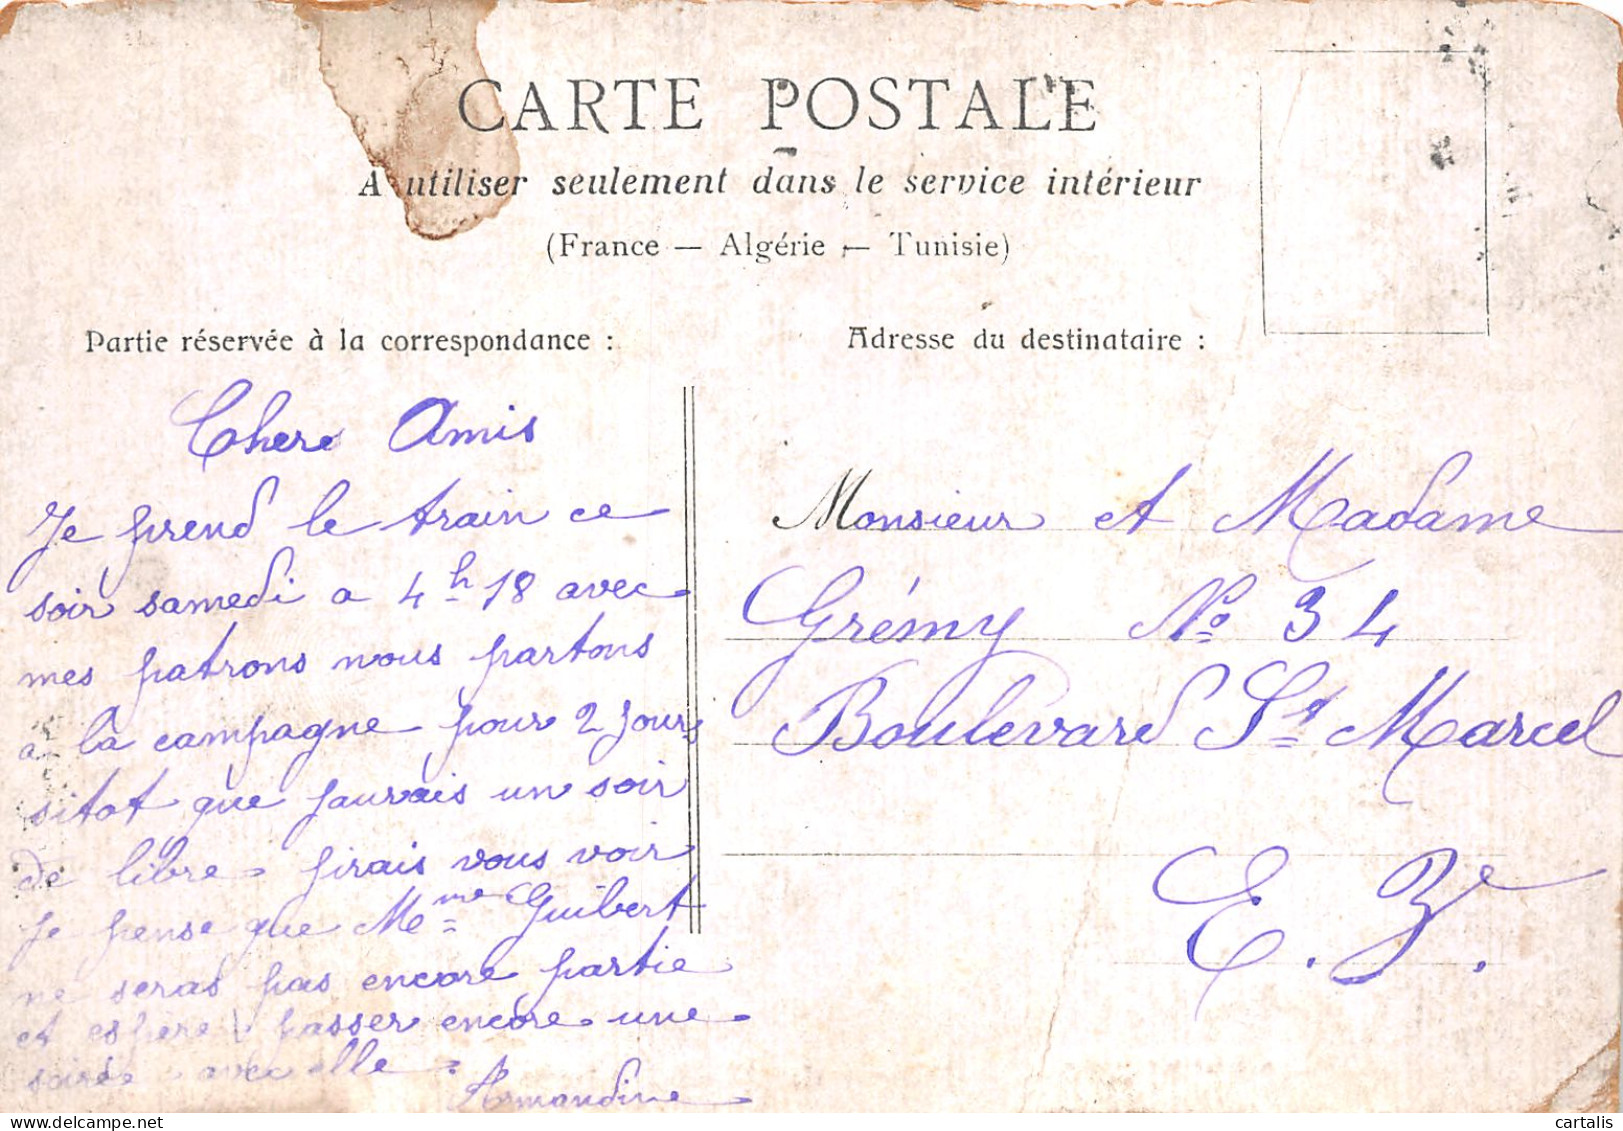 CARTE POSTALE
A utiliser seulement dans le service intérieur
(France — Algérie — Tunisie)
Partie réservée à la correspondance :
Adresse du destinataire :
Chere Amis
Je prend le train ce
soir samedi a 4h 18 avec
mes patrons nous partons
a la campagne pour 2 jours
sitot que jaurais un soir
de libre jirais vous voir
je pense que Mme Guibert
ne seras pas encore partie
et espere passer encore une
soirée avec elle.
Armandine
Monsieur et Madame
Grémy No 34
Boulevard St Marcel
E. Ve.
www.delcampe.net
cartalis